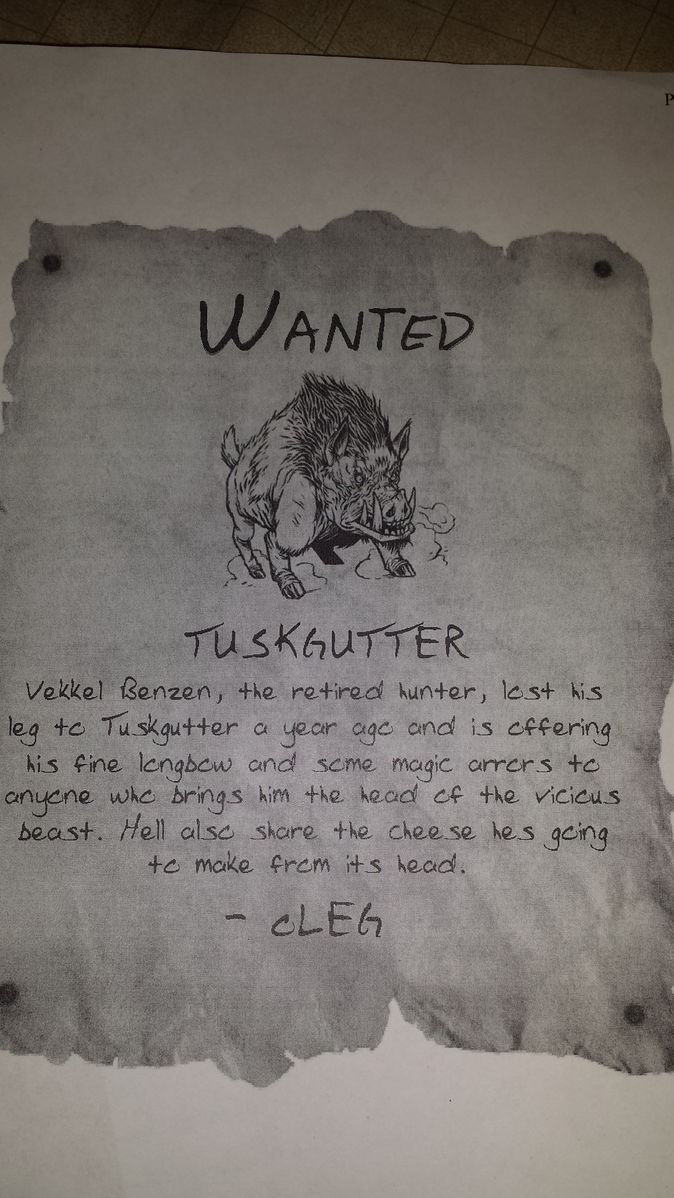 P
WANTED
TUSKGUTTER
Vekkel Benzen, the retired hunter, lost his
leg to Tuskgutter a year ago and is offering
his fine longbow and some magic arrors to
anyone who brings him the head of the vicious
beast. Hell also share the cheese hes going
to make from its head.
- OLEG